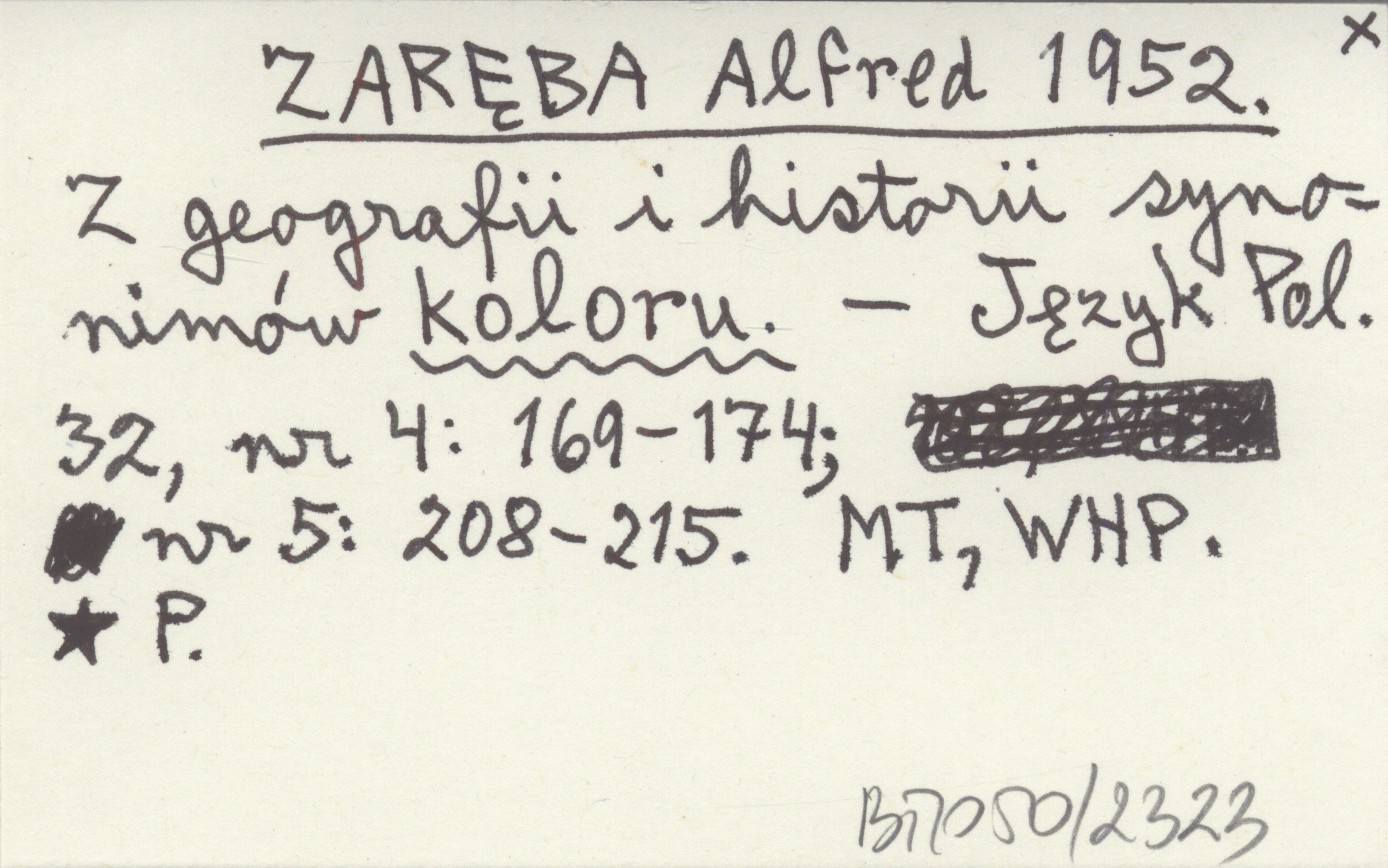 ×
ZARĘBA Alfred 1952.
Z geografii i historii syno=
nimów koloru. – Język Pol.
32, nr 4: 169–174;
nr 5: 208–215. MT, WHP.
★ P.